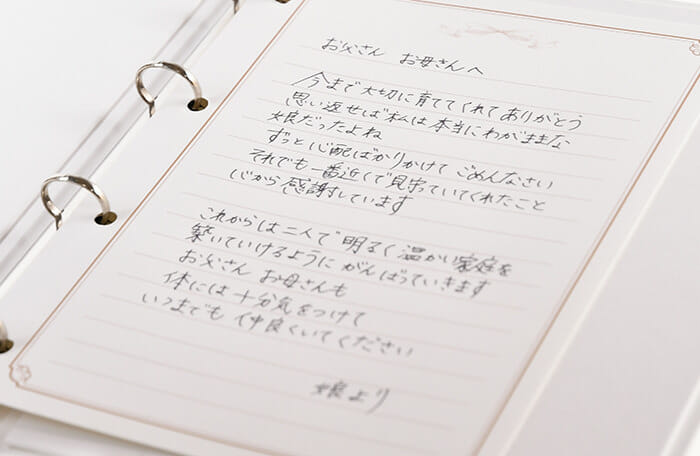 お父さん　お母さんへ
今まで大切に育ててくれてありがとう
思い返せば私は本当にわがままな
娘だったよね
ずっと心配ばかりかけてごめんなさい
それでも一番近くで見守っていてくれたこと
心から感謝しています
これからは二人で明るく温かい家庭を
築いていけるようにがんばっていきます
お父さん　お母さんも
体には十分気をつけて
いつまでも仲良くいてください
娘より